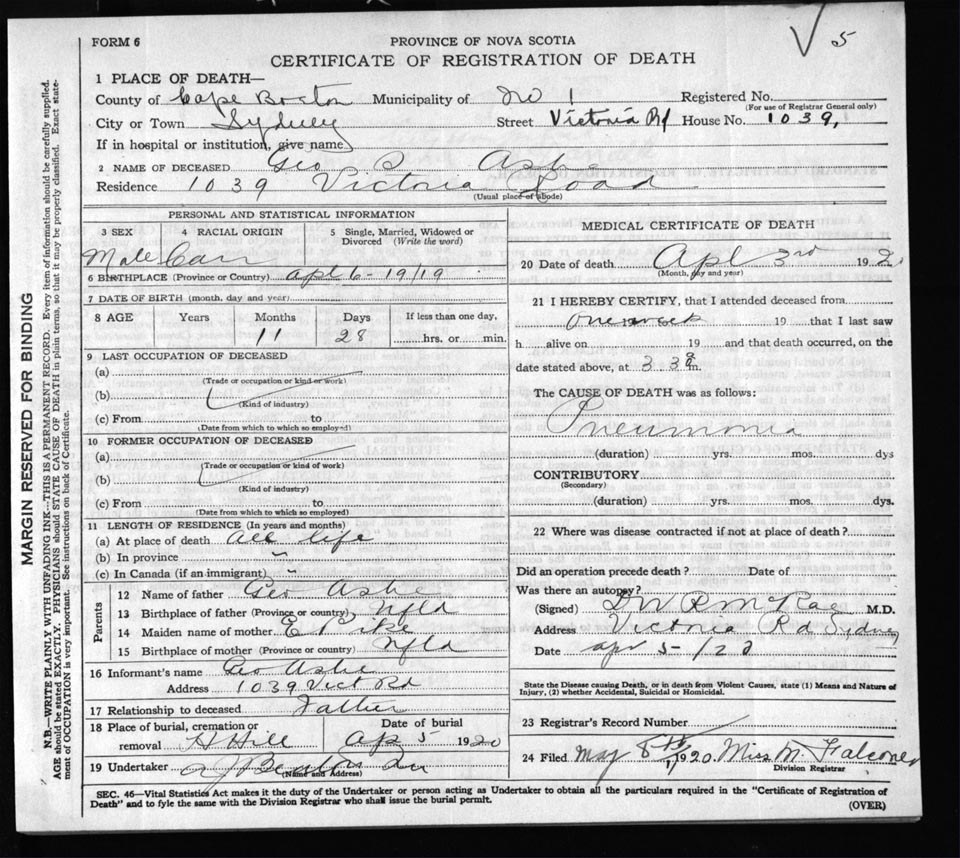 5
FORM 6
PROVINCE OF NOVA SCOTIA
CERTIFICATE OF REGISTRATION OF DEATH
1 PLACE OF DEATH—
County of Cape Breton Municipality of No 1 Registered No.
(For use of Registrar General only)
City or Town Sydney Street Victoria Rd House No. 1039,
If in hospital or institution, give name
2 NAME OF DECEASED Geo R Ashe
Residence 1039 Victoria Road
(Usual place of abode)
PERSONAL AND STATISTICAL INFORMATION
3 SEX 4 RACIAL ORIGIN 5 Single, Married, Widowed or Divorced (Write the word)
Male Can
6 BIRTHPLACE (Province or Country) Apl 6-19/19
7 DATE OF BIRTH (month, day and year)
8 AGE Years Months Days If less than one day,
11 28 hrs. or min.
9 LAST OCCUPATION OF DECEASED
(a)
(Trade or occupation or kind or work)
(b)
(Kind of industry)
(c) From to
(Date from which to which so employed)
10 FORMER OCCUPATION OF DECEASED
(a)
(Trade or occupation or kind of work)
(b)
(Kind of industry)
(c) From to
(Date from which to which so employed)
11 LENGTH OF RESIDENCE (In years and months)
(a) At place of death all life
(b) In province "
(c) In Canada (if an immigrant) "
Parents
12 Name of father Geo Ashe
13 Birthplace of father (Province or country) Nfld
14 Maiden name of mother E Pike
15 Birthplace of mother (Province or country) Nfld
16 Informant's name Geo Ashe
Address 1039 Vict Rd
17 Relationship to deceased Father
18 Place of burial, cremation or Date of burial
removal H Hill Ap 5 1920
19 Undertaker
(Name and Address)
MEDICAL CERTIFICATE OF DEATH
20 Date of death Apl 3rd 192
(Month, day and year)
21 I HEREBY CERTIFY, that I attended deceased from
one week 19 that I last saw
h alive on 19 and that death occurred, on the
date stated above, at 3 30 m.
The CAUSE OF DEATH was as follows:
Pneumonia
(duration) yrs. mos. dys
CONTRIBUTORY
(Secondary)
(duration) yrs. mos. dys.
22 Where was disease contracted if not at place of death?
Did an operation precede death? Date of
Was there an autopsy?
(Signed) McRae M.D.
Address Victoria Rd Sydney
Date apr 5-/20
State the Disease causing Death, or in death from Violent Causes, state (1) Means and Nature of
Injury, (2) whether Accidental, Suicidal or Homicidal.
23 Registrar's Record Number
24 Filed May 8th 1920 Miss M. Falconer
Division Registrar
SEC. 46—Vital Statistics Act makes it the duty of the Undertaker or person acting as Undertaker to obtain all the particulars required in the "Certificate of Registration of
Death" and to fyle the same with the Division Registrar who shall issue the burial permit.
(OVER)
MARGIN RESERVED FOR BINDING
N.B.—WRITE PLAINLY WITH UNFADING INK—THIS IS A PERMANENT RECORD. Every item of information should be carefully supplied.
AGE should be stated EXACTLY. PHYSICIANS should STATE CAUSE OF DEATH in plain terms, so that it may be properly classified. Exact state-
ment of OCCUPATION is very important. See instructions on back of Certificate.